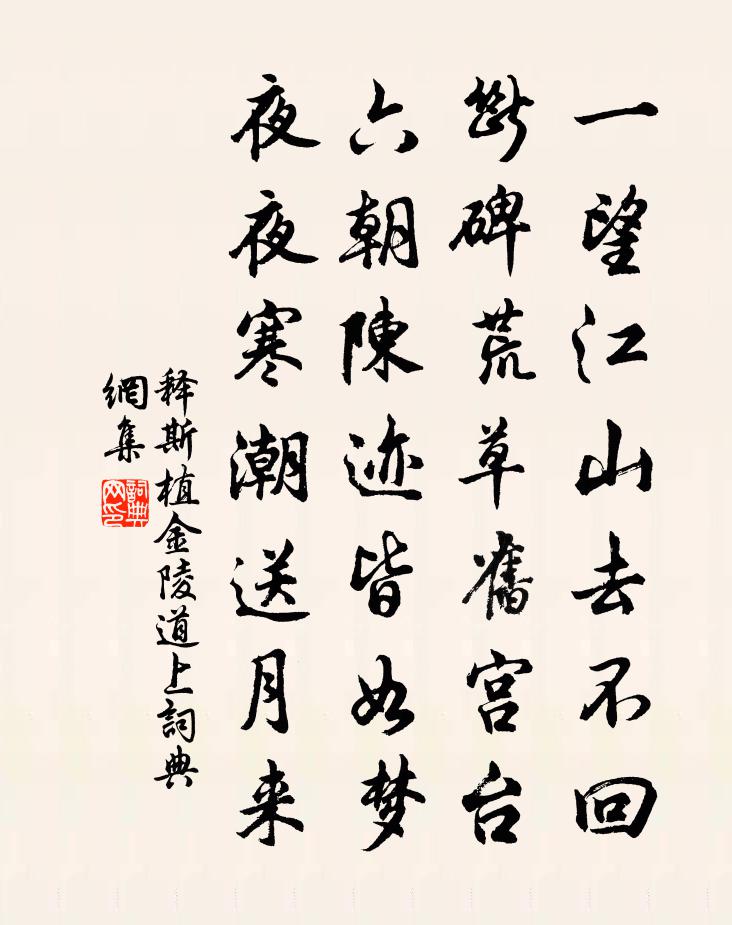 一望江山去不回
斷碑荒草舊宫台
六朝陳迹皆如梦
夜夜寒潮送月来
释斯植金陵道上詞典
網集
詞典
网印